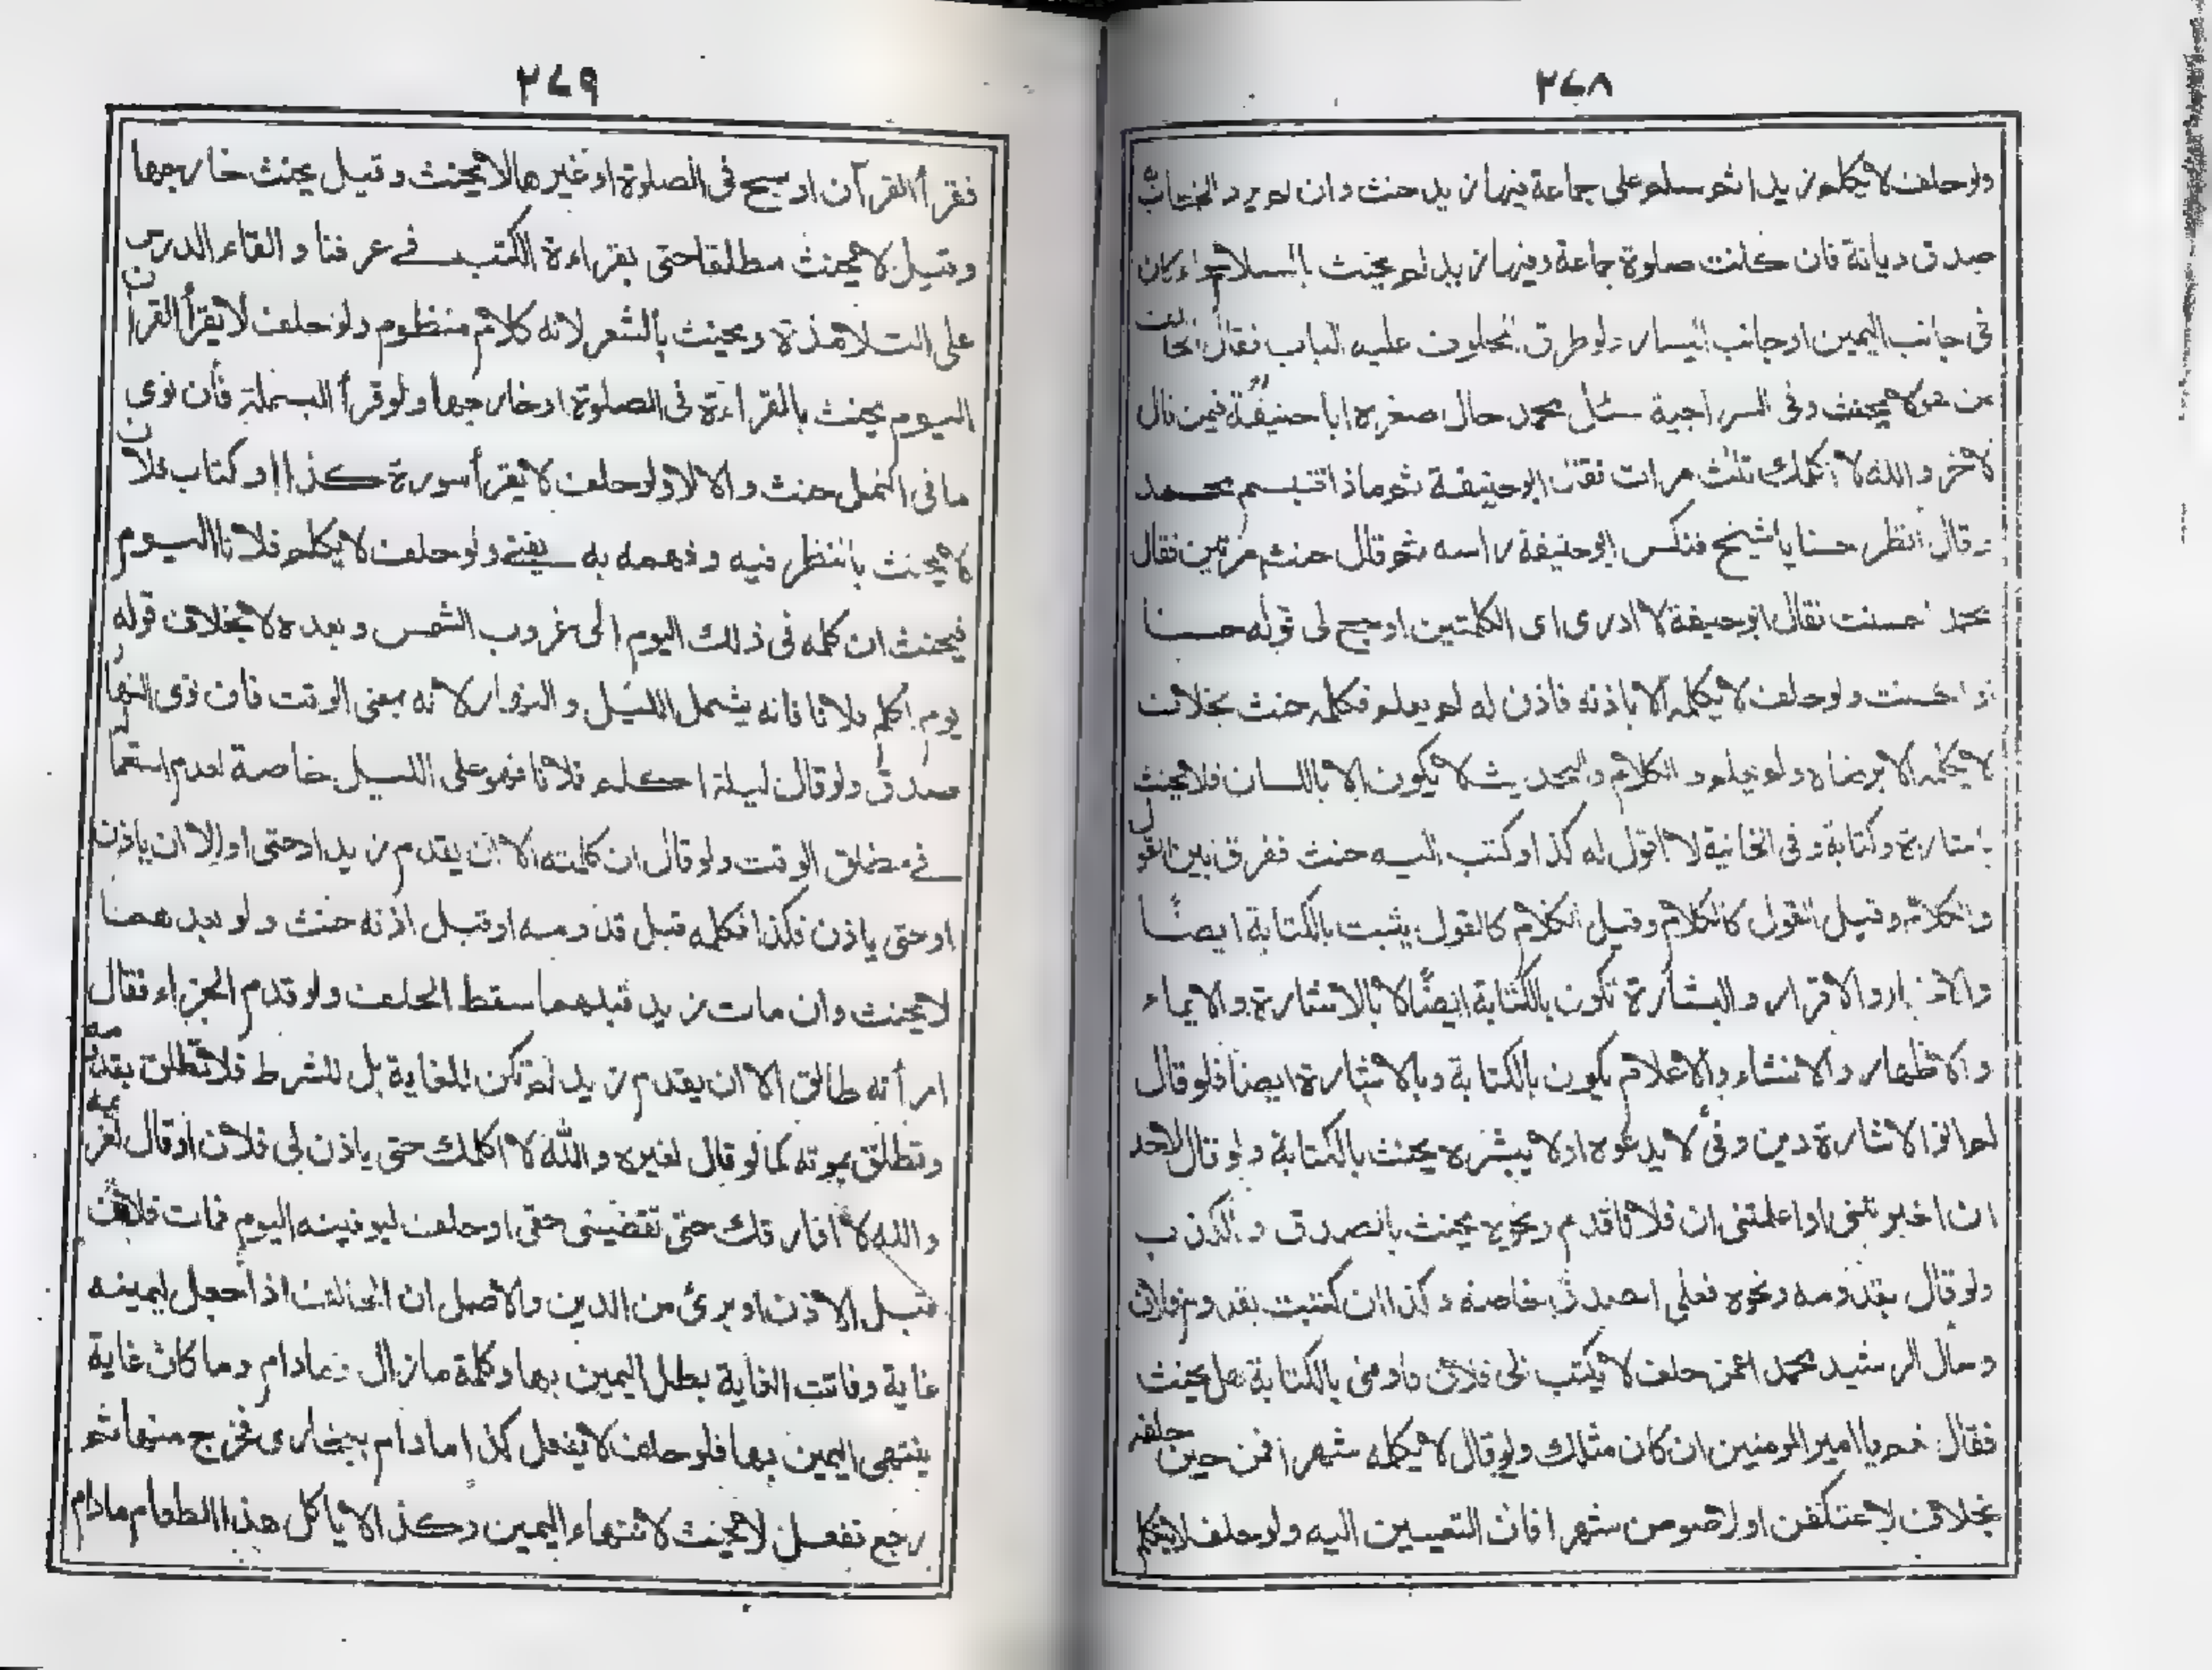 ٢٤٨
ولو حلف لا يكلم زيدا ثم سلم على جماعة فيها زيد حنث وان لم يرد
صدق ديانة فان كانت صلوة جماعة وفيها زيد لم يحنث بالسلام سواء كان
فى جانب اليمين او جانب اليسار ولو طرق المحلوف عليه الباب فقال الحالف
من هو لا يحنث وفى السراجية سئل محمد حال صغره ابا حنيفة فيمن قال
لاخر والله لا اكلمك ثلث مرات فقال ابو حنيفة ثم ماذا فتبسم محمد
وقال انظر حسنا يا شيخ فنكس ابو حنيفة راسه ثم قال حنث مرتين فقال
محمد احسنت فقال ابو حنيفة لا ادرى اى الكلمتين اوجع لى قوله حسنا
او احسنت ولو حلف لا يكلمه الا باذنه فاذن له لم يعلم فكلمه حنث بخلاف
لا يكلمه الا برضاه ولم يعلم والكلام والحديث لا يكون الا باللسان فلا يحنث
باشارة وكتابة وفى الخانية لا اقول له كذا وكتب اليه حنث ففرق بين القول
والكلام وقيل القول كالكلام وقيل الكلام كالقول يثبت بالكتابة ايضًا
والاخبار والاقرار والبشارة تكون بالكتابة ايضًا لا بالاشارة والايماء
والاظهار والانشاء والاعلام يكون بالكتابة وبالاشارة ايضا فلو قال
لم انو الاشارة دين وفى لا يدعوه او لا يبشره يحنث بالكتابة ولو قال لاحد
ان اخبرتنى او اعلمتنى ان فلانا قدم ونحوه يحنث بالصدق والكذب
ولو قال بقدومه ونحوه فعلى الصدق خاصة وكذا ان كتبت بقدوم فلان
وسأل الرشيد محمد اعمن حلف لا يكتب الى فلان فاومى بالكتابة هل يحنث
فقال نعم يا امير المومنين ان كان مثلك ولو قال لا يكلمه شهرا فمن حين حلفه
بخلاف لاعتكفن او لاصومن شهرا فان التعيين اليه ولو حلف لا يتكلم
٢٤٩
فقرأ القرآن او سبح فى الصلوة او غيرها لا يحنث وقيل يحنث خارجها
وقيل لا يحنث مطلقا حتى بقراءة الكتب فے عرفنا والقاء الدرس
على التلامذة ويحنث بالشعر لانه كلام منظوم ولو حلف لا يقرأ القرآن
اليوم يحنث بالقراءة فى الصلوة او خارجها ولو قرأ البسملة فأن نوى
ما فى النمل حنث والا لا ولو حلف لا يقرأ سورة كذا او كتاب فلان
لا يحنث بالنظر فيه وفهمه به يفتى ولو حلف لا يكلم فلانا اليوم
فيحنث ان كلمه فى ذلك اليوم الى غروب الشمس وبعده لا بخلاف قوله
يوم اكلم فلانا فانه يشمل الليل والنهار لانه بمعنى الوقت فان نوى النهار
صدق ولو قال ليلة اكلم فلانا فهو على الليل خاصة لعدم استعماله
فے مطلق الوقت ولو قال ان كلمته الا ان يقدم زيد او حتى او الا ان ياذن
او حتى ياذن فكذا فكلمه قبل قدومه او قبل اذنه حنث ولو بعدهما
لا يحنث وان مات زيد قبلهما سقط الحلف ولو قدم الجزاء فقال
امرأته طالق الا ان يقدم زيد لم تكن للغاية بل للشرط فلا تطلق بقدومه
وتطلق بموته كما لو قال لغيره والله لا اكلمك حتى ياذن لى فلان او قال لغريمه
والله لا افارقك حتى تقضينى حقى او حلف ليوفينه اليوم فمات فلان
قبل الاذن او برئ من الدين والاصل ان الحالف اذا جعل ليمينه
غاية وفاتت الغاية بطل اليمين بها وكلمة ما زال وما دام وما كان غاية
ينتهى اليمين بها فلو حلف لا يفعل كذا ما دام ببخارى فخرج منها ثم
رجع ففعل لا يحنث لانتهاء اليمين وكذا لا ياكل هذا الطعام مادام